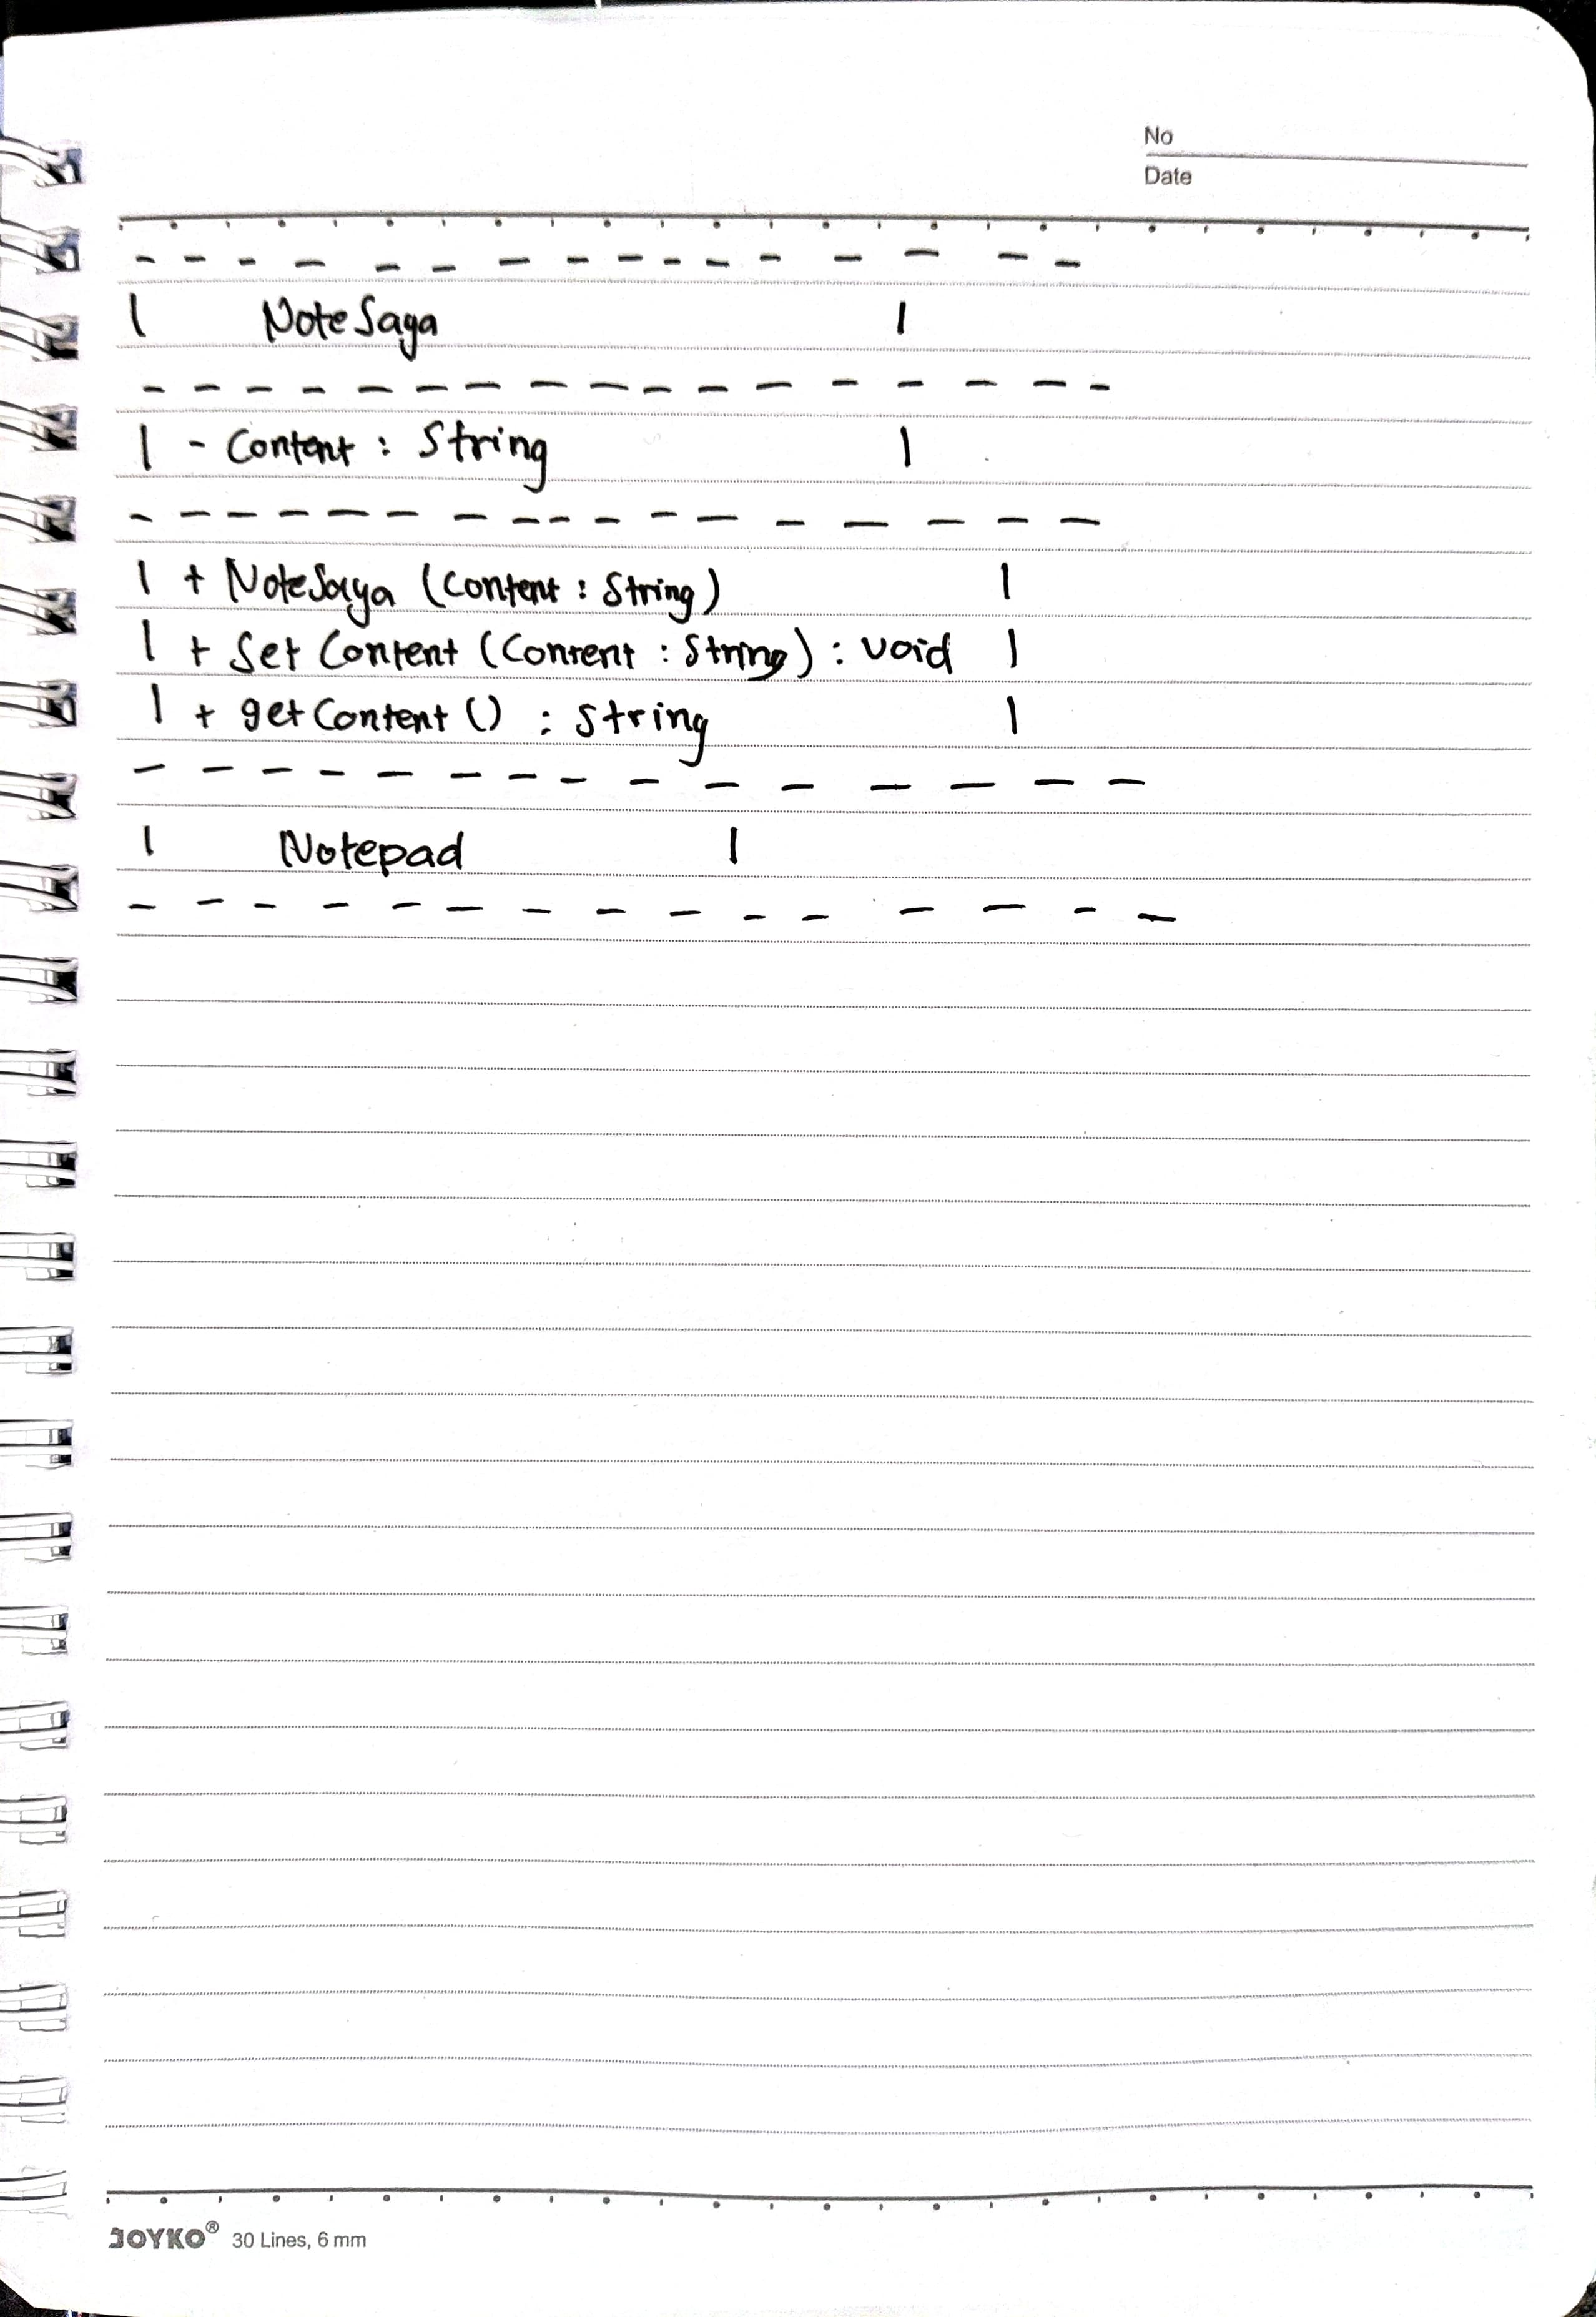 No
Date
- - - - - - - - - - - - - - - -
| NoteSaya |
- - - - - - - - - - - - - - - - -
| - Content : String |
- - - - - - - - - - - - - - - - -
| + NoteSaya (Content : String) |
| + Set Content (Content : String) : void |
| + getContent () : String |
- - - - - - - - - - - - - - - -
| Notepad |
- - - - - - - - - - - - - - -
JOYKO® 30 Lines, 6 mm